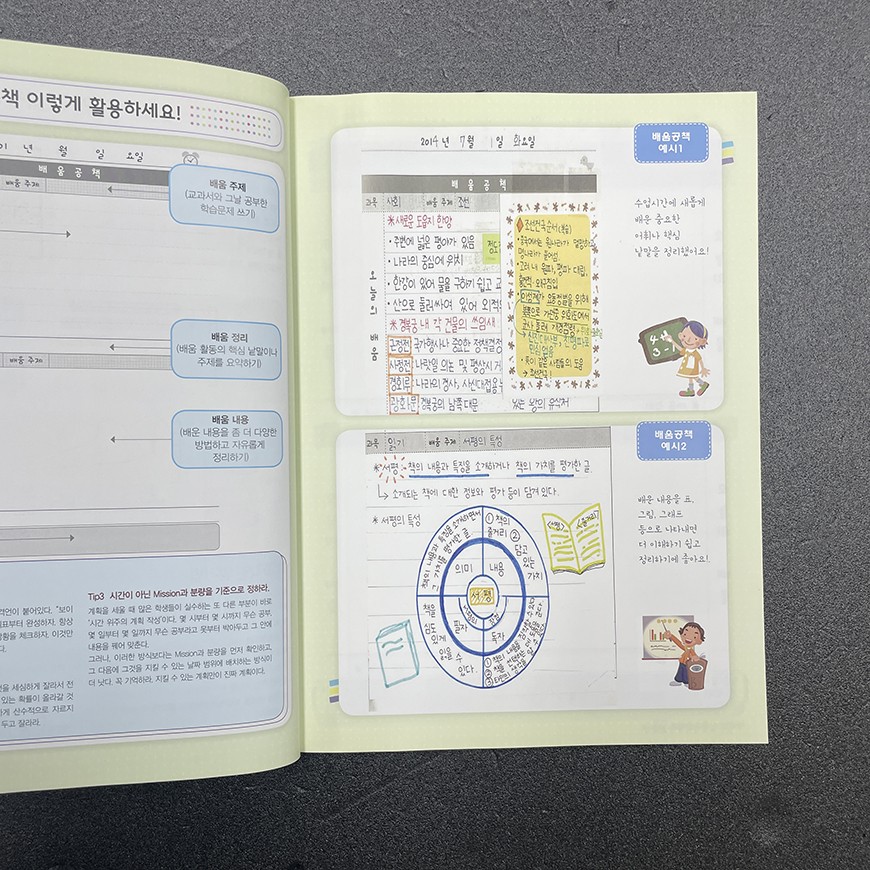 책 이렇게 활용하세요!
년 월 일 요일
배 움 공 책
배움 주제
배움 주제
(교과서와 그날 공부한
학습문제 쓰기)
배움 정리
(배움 활동의 핵심 낱말이나
주제를 요약하기)
배움 주제
배움 내용
(배운 내용을 좀 더 다양한
방법하고 자유롭게
정리하기)
Tip3 시간이 아닌 Mission과 분량을 기준으로 정하라.
계획을 세울 때 많은 학생들이 실수하는 또 다른 부분이 바로
'시간 위주의 계획 작성'이다. 몇 시부터 몇 시까지 무슨 공부,
몇 일부터 몇 일까지 무슨 공부라고 못부터 박아두고 그 안에
내용을 꿰어 맞춘다.
그러나, 이러한 방식보다는 Mission과 분량을 먼저 확인하고,
그 다음에 그것을 지킬 수 있는 날짜 범위에 배치하는 방식이
더 낫다. 꼭 기억하라. 지킬 수 있는 계획만이 진짜 계획이다.
격언이 붙어있다. "보이
표부터 완성하자. 항상
황을 체크하자. 이것만
다.
것을 세심하게 잘라서 전
있는 확률이 올라갈 것
하게 산수적으로 자르지
두고 잘라라.
2014년 7월 1일 화요일
배 움 공 책
과목 사회 배움 주제 조선
오늘의 배움
※새로운 도읍지 한양
•주변에 넓은 평야가 있음
•나라의 중심에 위치
•한강이 있어 물을 구하기 쉽고 교
•산으로 둘러싸여 있어 외적
※경복궁 내 각 건물의 쓰임새
근정전 국가행사나 중요한 정책결정
사정전 나랏일 의논 및 평상시 게
경회루 나라의 경사, 사신대접을
광화문 경복궁의 남쪽 대문
조선건국순서(복습)
•중국에서는 원나라가 멸망하고
명나라가 들어섬.
•고려 내 원파, 명파 대립,
홍건적·왜구침입
•이성계가 요동정벌을 위해
북쪽으로 가던중 위화도에서
→조선건국!
배움공책
예시1
수업시간에 새롭게
배운 중요한
어휘나 핵심
낱말을 정리했어요!
4
3-1
과목 읽기 배움 주제 서평의 특성
※서평:- 책의 내용과 특징을 소개하거나 책의 가치를 평가한 글.
↳ 소개되는 책에 대한 정보와 평가 등이 담겨 있다.
※서평의 특성
책의 내용과 특징을 소개하면서
그 가치를 평가한 글
① 책의
줄거리 ②
담고
있는
가치
의미
내용
서평
필자
독자
책을
심도
있게
읽을 수
있다.
배움공책
예시2
배운 내용을 표,
그림, 그래프
등으로 나타내면
더 이해하기 쉽고
정리하기에 좋아요!